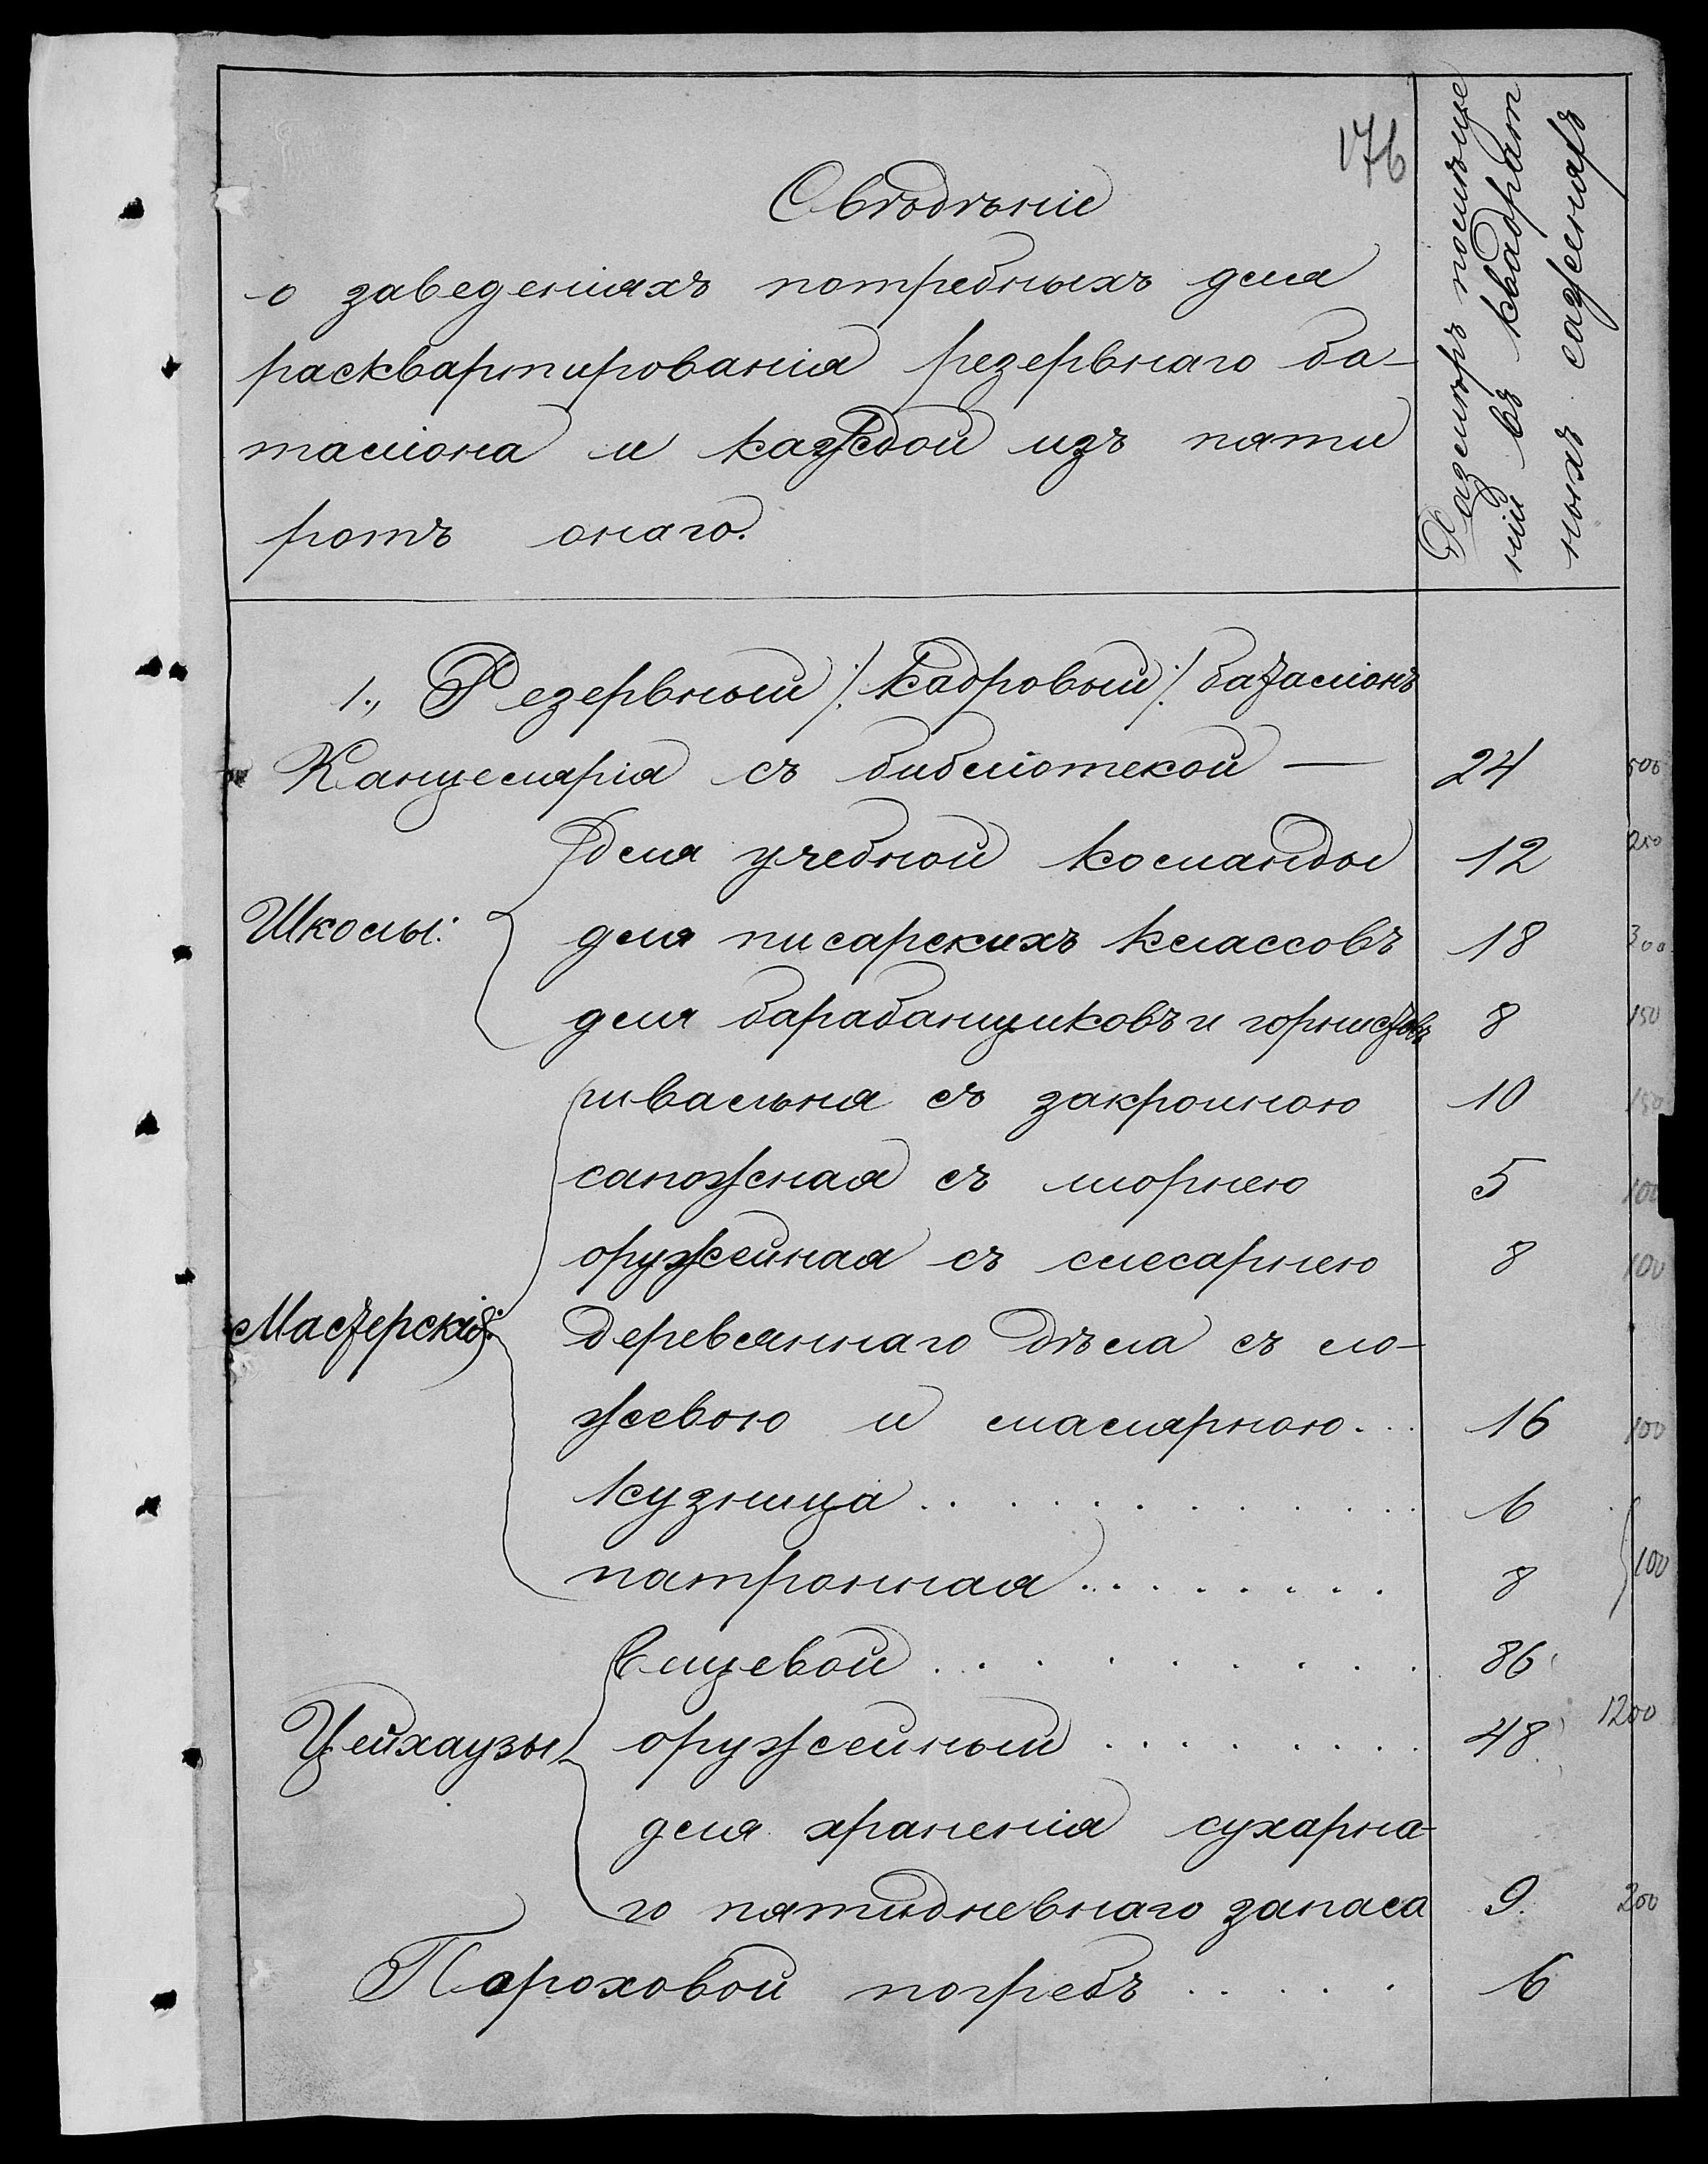 176
Свѣдѣніе
о заведеніяхъ потребныхъ для
расквартированія резервнаго ба-
таліона и каждой изъ пяти
ротъ онаго.
Размѣръ помѣще
ній въ квадрат
ныхъ саженяхъ
1., Резервный /: кадровый :/ баталіонъ
Канцелярія съ библіотекой — 24 500
Школы:
для учебной команды 12 250
для писарскихъ классовъ 18 300
для барабанщиковъ и горнистовъ 8 150
Мастерскія:
швальня съ закройною 10 150
сапожная съ шорнею 5 100
оружейная съ слесарнею 8 100
деревяннаго дѣла съ ло-
жевою и малярною... 16 100
кузница . . . . . . . . . . . 6
патронная . . . . . . . . 8 100
Цейхаузы
вещевой . . . . . . . . . . 86
оружейный . . . . . . . . 48 1200
для храненія сухарна-
го пятидневнаго запаса 9. 200
Пороховой погребъ . . . . . 6